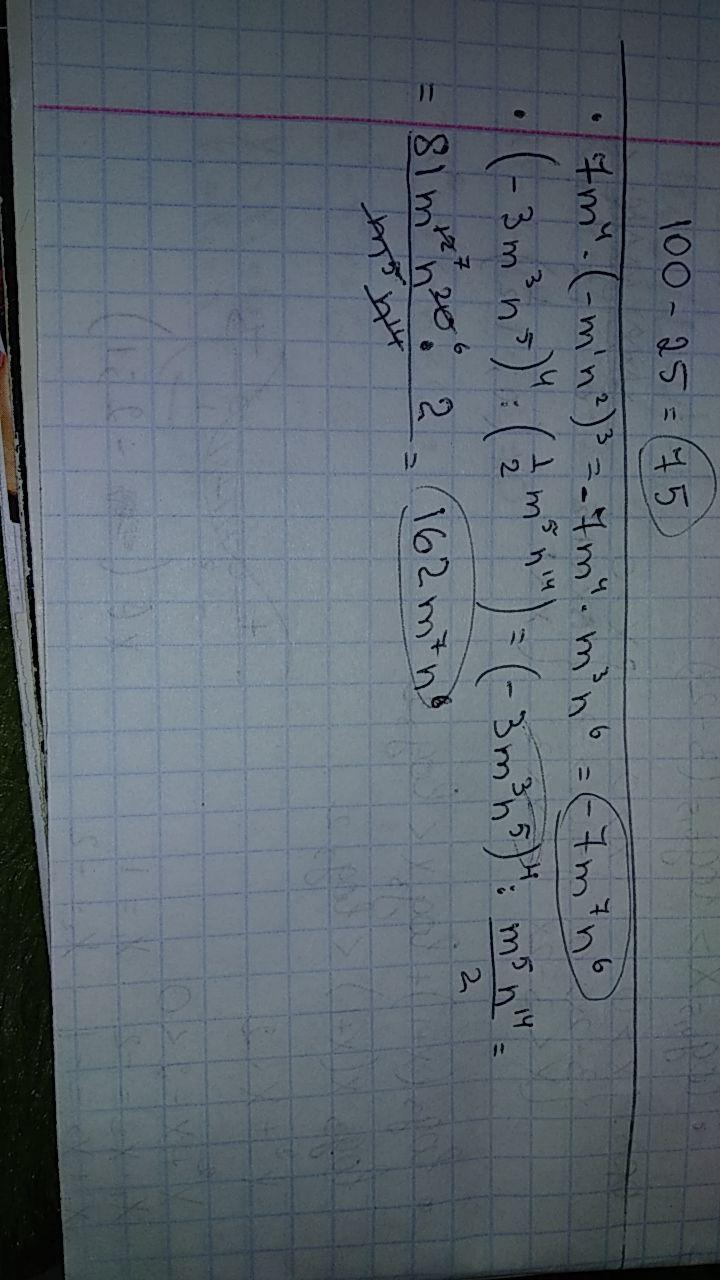 100 - 25 = 75
• 7m⁴ · (-m¹n²)³ = -7m⁴ · m³n⁶ = -7m⁷n⁶
• (-3m³n⁵)⁴ : (1/2 m⁵n¹⁴) = (-3m³n⁵)⁴ : m⁵n¹⁴/2 =
= 81m¹²⁷n²⁰⁶ · 2 / m⁵n¹⁴ = 162m⁷n⁶